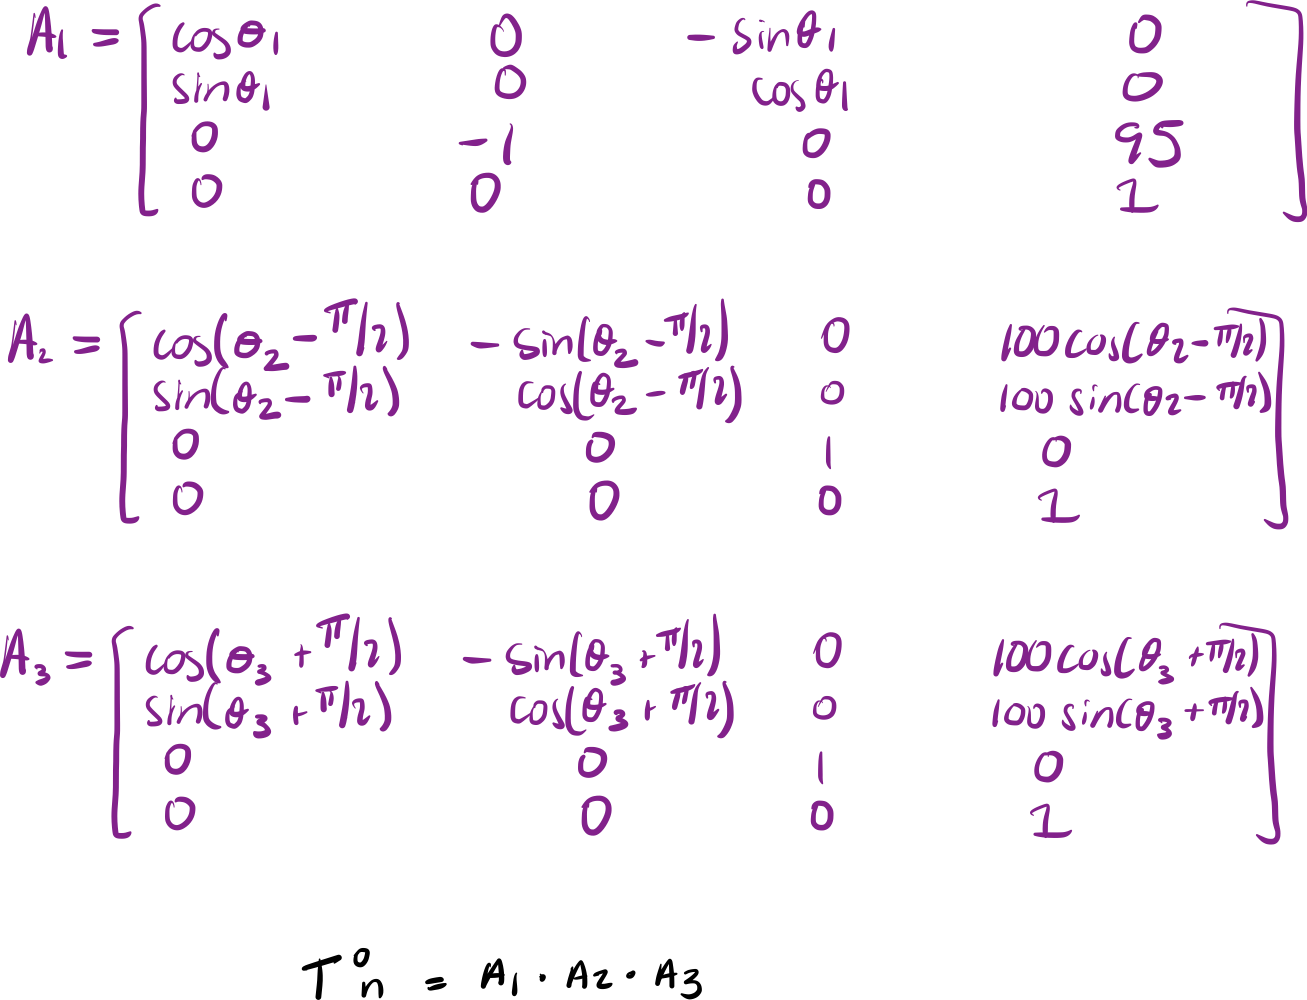 A₁ = [ cosθ₁ 0 - sinθ₁ 0
sinθ₁ 0 cosθ₁ 0
0 -1 0 95
0 0 0 1 ]
A₂ = [ cos(θ₂ - π/2) - sin(θ₂ - π/2) 0 100 cos(θ₂ - π/2)
sin(θ₂ - π/2) cos(θ₂ - π/2) 0 100 sin(θ₂ - π/2)
0 0 1 0
0 0 0 1 ]
A₃ = [ cos(θ₃ + π/2) - sin(θ₃ + π/2) 0 100 cos(θ₃ + π/2)
sin(θ₃ + π/2) cos(θ₃ + π/2) 0 100 sin(θ₃ + π/2)
0 0 1 0
0 0 0 1 ]
T⁰ₙ = A₁ · A₂ · A₃